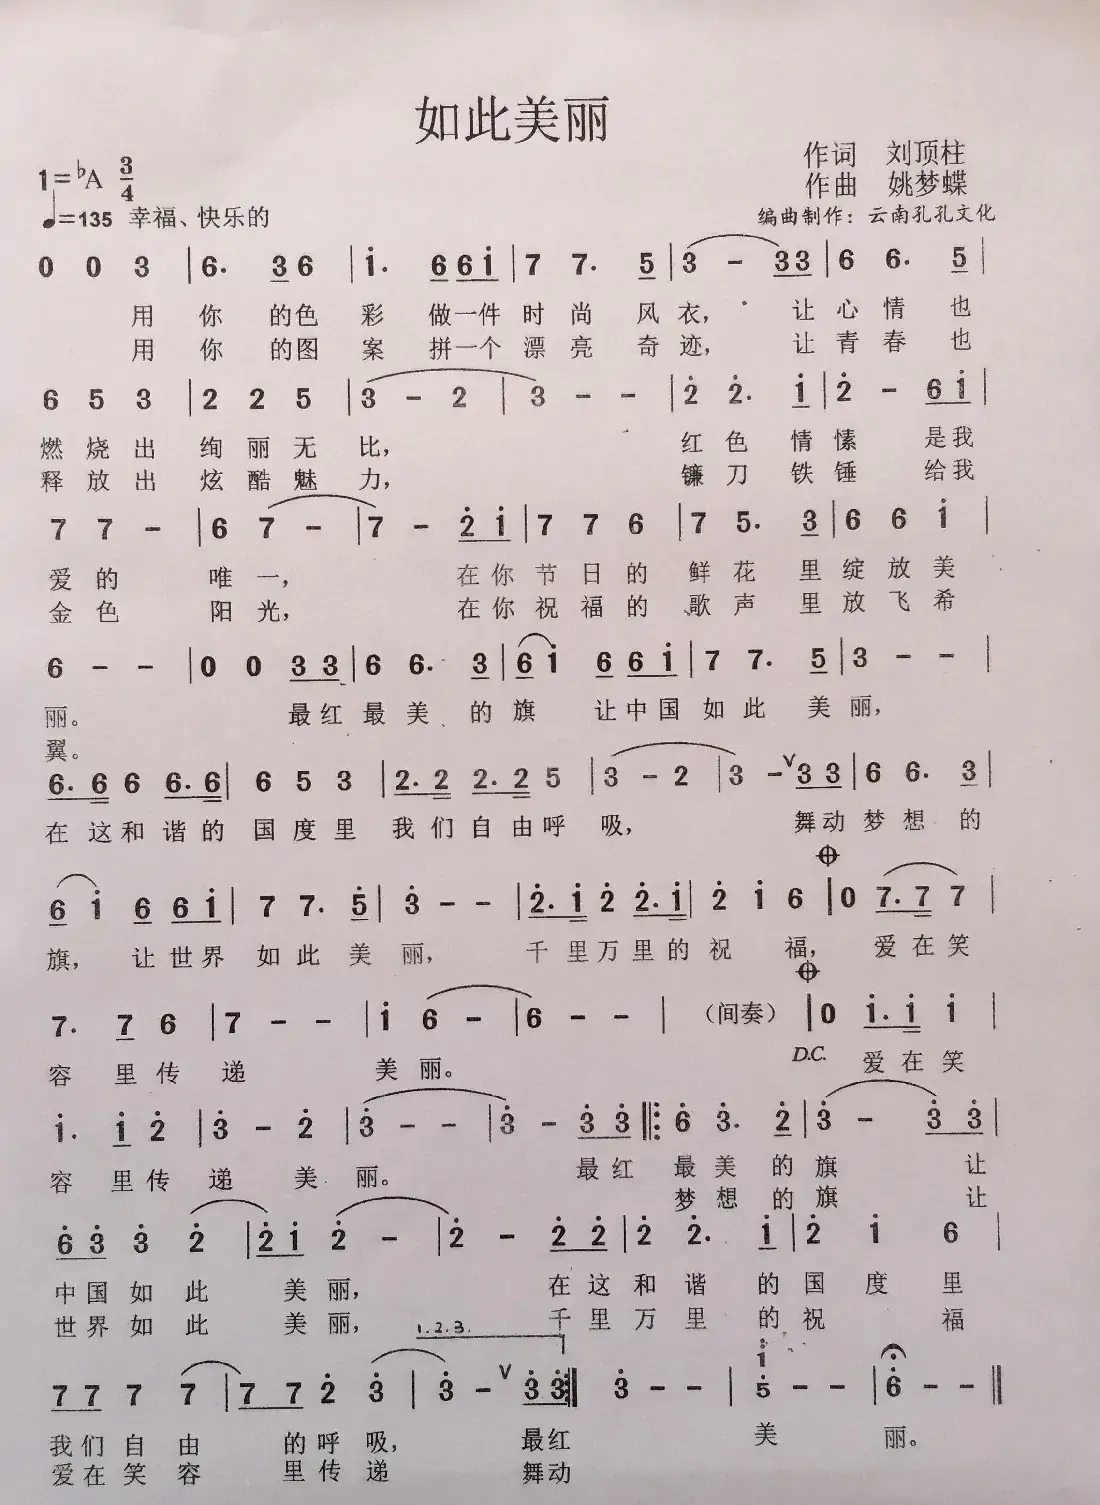 如此美丽
作词 刘顶柱
1=♭A 3/4
作曲 姚梦蝶
♩=135 幸福、快乐的
编曲制作：云南孔孔文化
0 0 3 | 6. 36 | i. 6 6 i | 7 7. 5 | 3 - 33 | 6 6. 5 |
用 你 的色 彩 做一件 时 尚 风 衣， 让 心 情 也
用 你 的图 案 拼一个 漂 亮 奇 迹， 让 青 春 也
6 5 3 | 2 2 5 | 3 - 2 | 3 - - | 2̇ 2̇. i | 2̇ - 6 i |
燃 烧 出 绚 丽 无 比， 红 色 情 愫 是我
释 放 出 炫 酷 魅 力， 镰 刀 铁 锤 给我
7 7 - | 6 7 - | 7 - 2̇ i | 7 7 6 | 7 5. 3 | 6 6 i |
爱 的 唯 一， 在你 节 日 的 鲜 花 里 绽 放 美
金 色 阳 光， 在你 祝 福 的 歌 声 里 放 飞 希
6 - - | 0 0 3 3 | 6 6. 3 | 6 i 6 6 i | 7 7. 5 | 3 - - |
丽。 最红 最 美 的 旗 让中国 如 此 美 丽，
翼。
6. 6 6 6. 6 | 6 5 3 | 2. 2 2. 2 5 | 3 - 2 | 3 - ∨ 3 3 | 6 6. 3 |
在 这 和 谐 的 国 度 里 我 们 自 由 呼 吸， 舞动 梦 想 的
6 i 6 6 i | 7 7. 5̇ | 3̇ - - | 2̇. i 2̇ 2̇. i | 2̇ i 6 | 0 7. 7 7 |
旗， 让 世 界 如 此 美 丽， 千 里 万 里 的 祝 福， 爱 在 笑
7. 7 6 | 7 - - | i 6 - | 6 - - | （间奏） | 0 i. i i |
容 里 传 递 美 丽。 D.C. 爱 在 笑
i. i 2̇ | 3̇ - 2̇ | 3̇ - - | 3̇ - 3̇ 3̇ |: 6̇ 3̇. 2̇ | 3̇ - 3̇ 3̇ |
容 里 传 递 美 丽。 最 红 最 美 的 旗 让
梦 想 的 旗 让
6̇ 3̇ 3̇ 2̇ | 2̇ i 2̇ - | 2̇ - 2̇ 2̇ | 2̇ 2̇. i | 2̇ i 6 |
中 国 如 此 美 丽， 在 这 和 谐 的 国 度 里
世 界 如 此 美 丽， 千 里 万 里 的 祝 福
1.2.3.
7 7 7 7 | 7 7 2̇ 3̇ | 3̇ - ∨ 3̇ 3̇ :| 3̇ - - | 5̇ - - | 6̇ - - ‖
我们 自 由 的 呼 吸， 最红 美 丽。
爱 在 笑 容 里 传 递 舞动